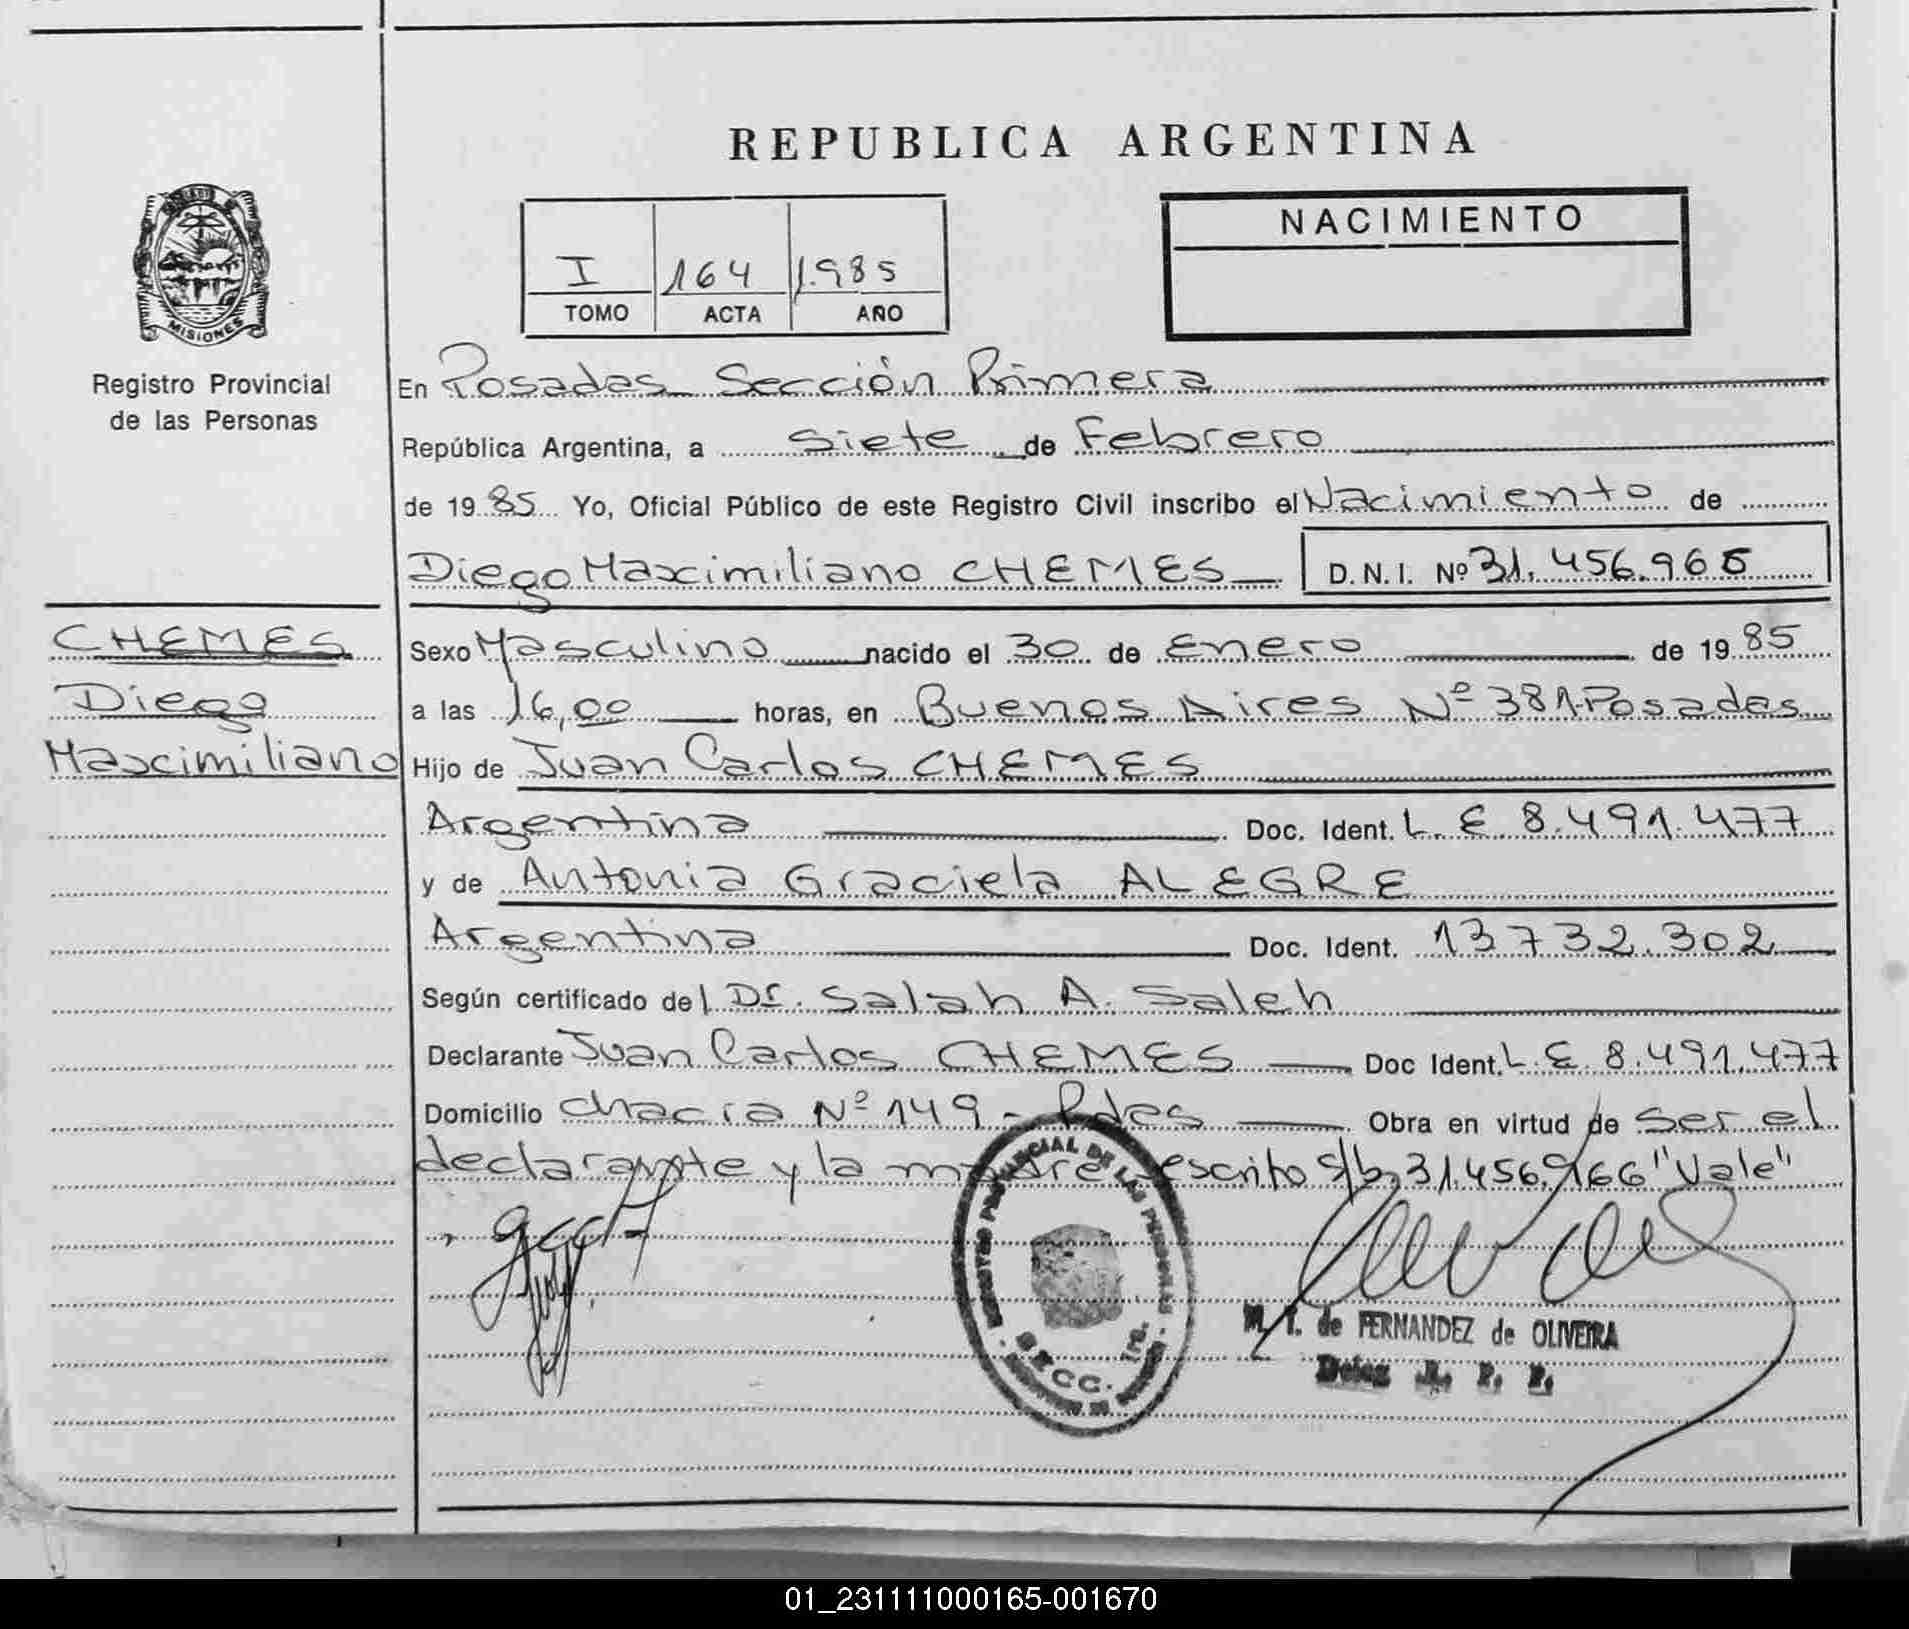 REPUBLICA ARGENTINA
MISIONES
Registro Provincial
de las Personas
I 164 1.985
TOMO ACTA AÑO
NACIMIENTO
En Posadas Sección Primera
República Argentina, a siete de Febrero
de 19 85 Yo, Oficial Público de este Registro Civil inscribo el Nacimiento de
Diego Maximiliano CHEMES D.N.I. Nº 31.456.966
CHEMES
Diego
Maximiliano
Sexo Masculino nacido el 30 de Enero de 19 85
a las 16,00 horas, en Buenos Aires Nº 381-Posadas
Hijo de Juan Carlos CHEMES
Argentina Doc. Ident. L. E 8.491.477
y de Antonia Graciela ALEGRE
Argentina Doc. Ident. 13.732.302
Según certificado del Dr. Salah A. Saleh
Declarante Juan Carlos CHEMES Doc Ident. L. E. 8.491.477
Domicilio chacra Nº 149 - Pdas Obra en virtud de ser el
declarante y la madre escrito s/b. 31.456.966 "Vale"
REGISTRO PROVINCIAL DE LAS PERSONAS
SECC. 1ra.
M. T. de FERNANDEZ de OLIVEIRA
Deleg. R. P. P.
01_231111000165-001670